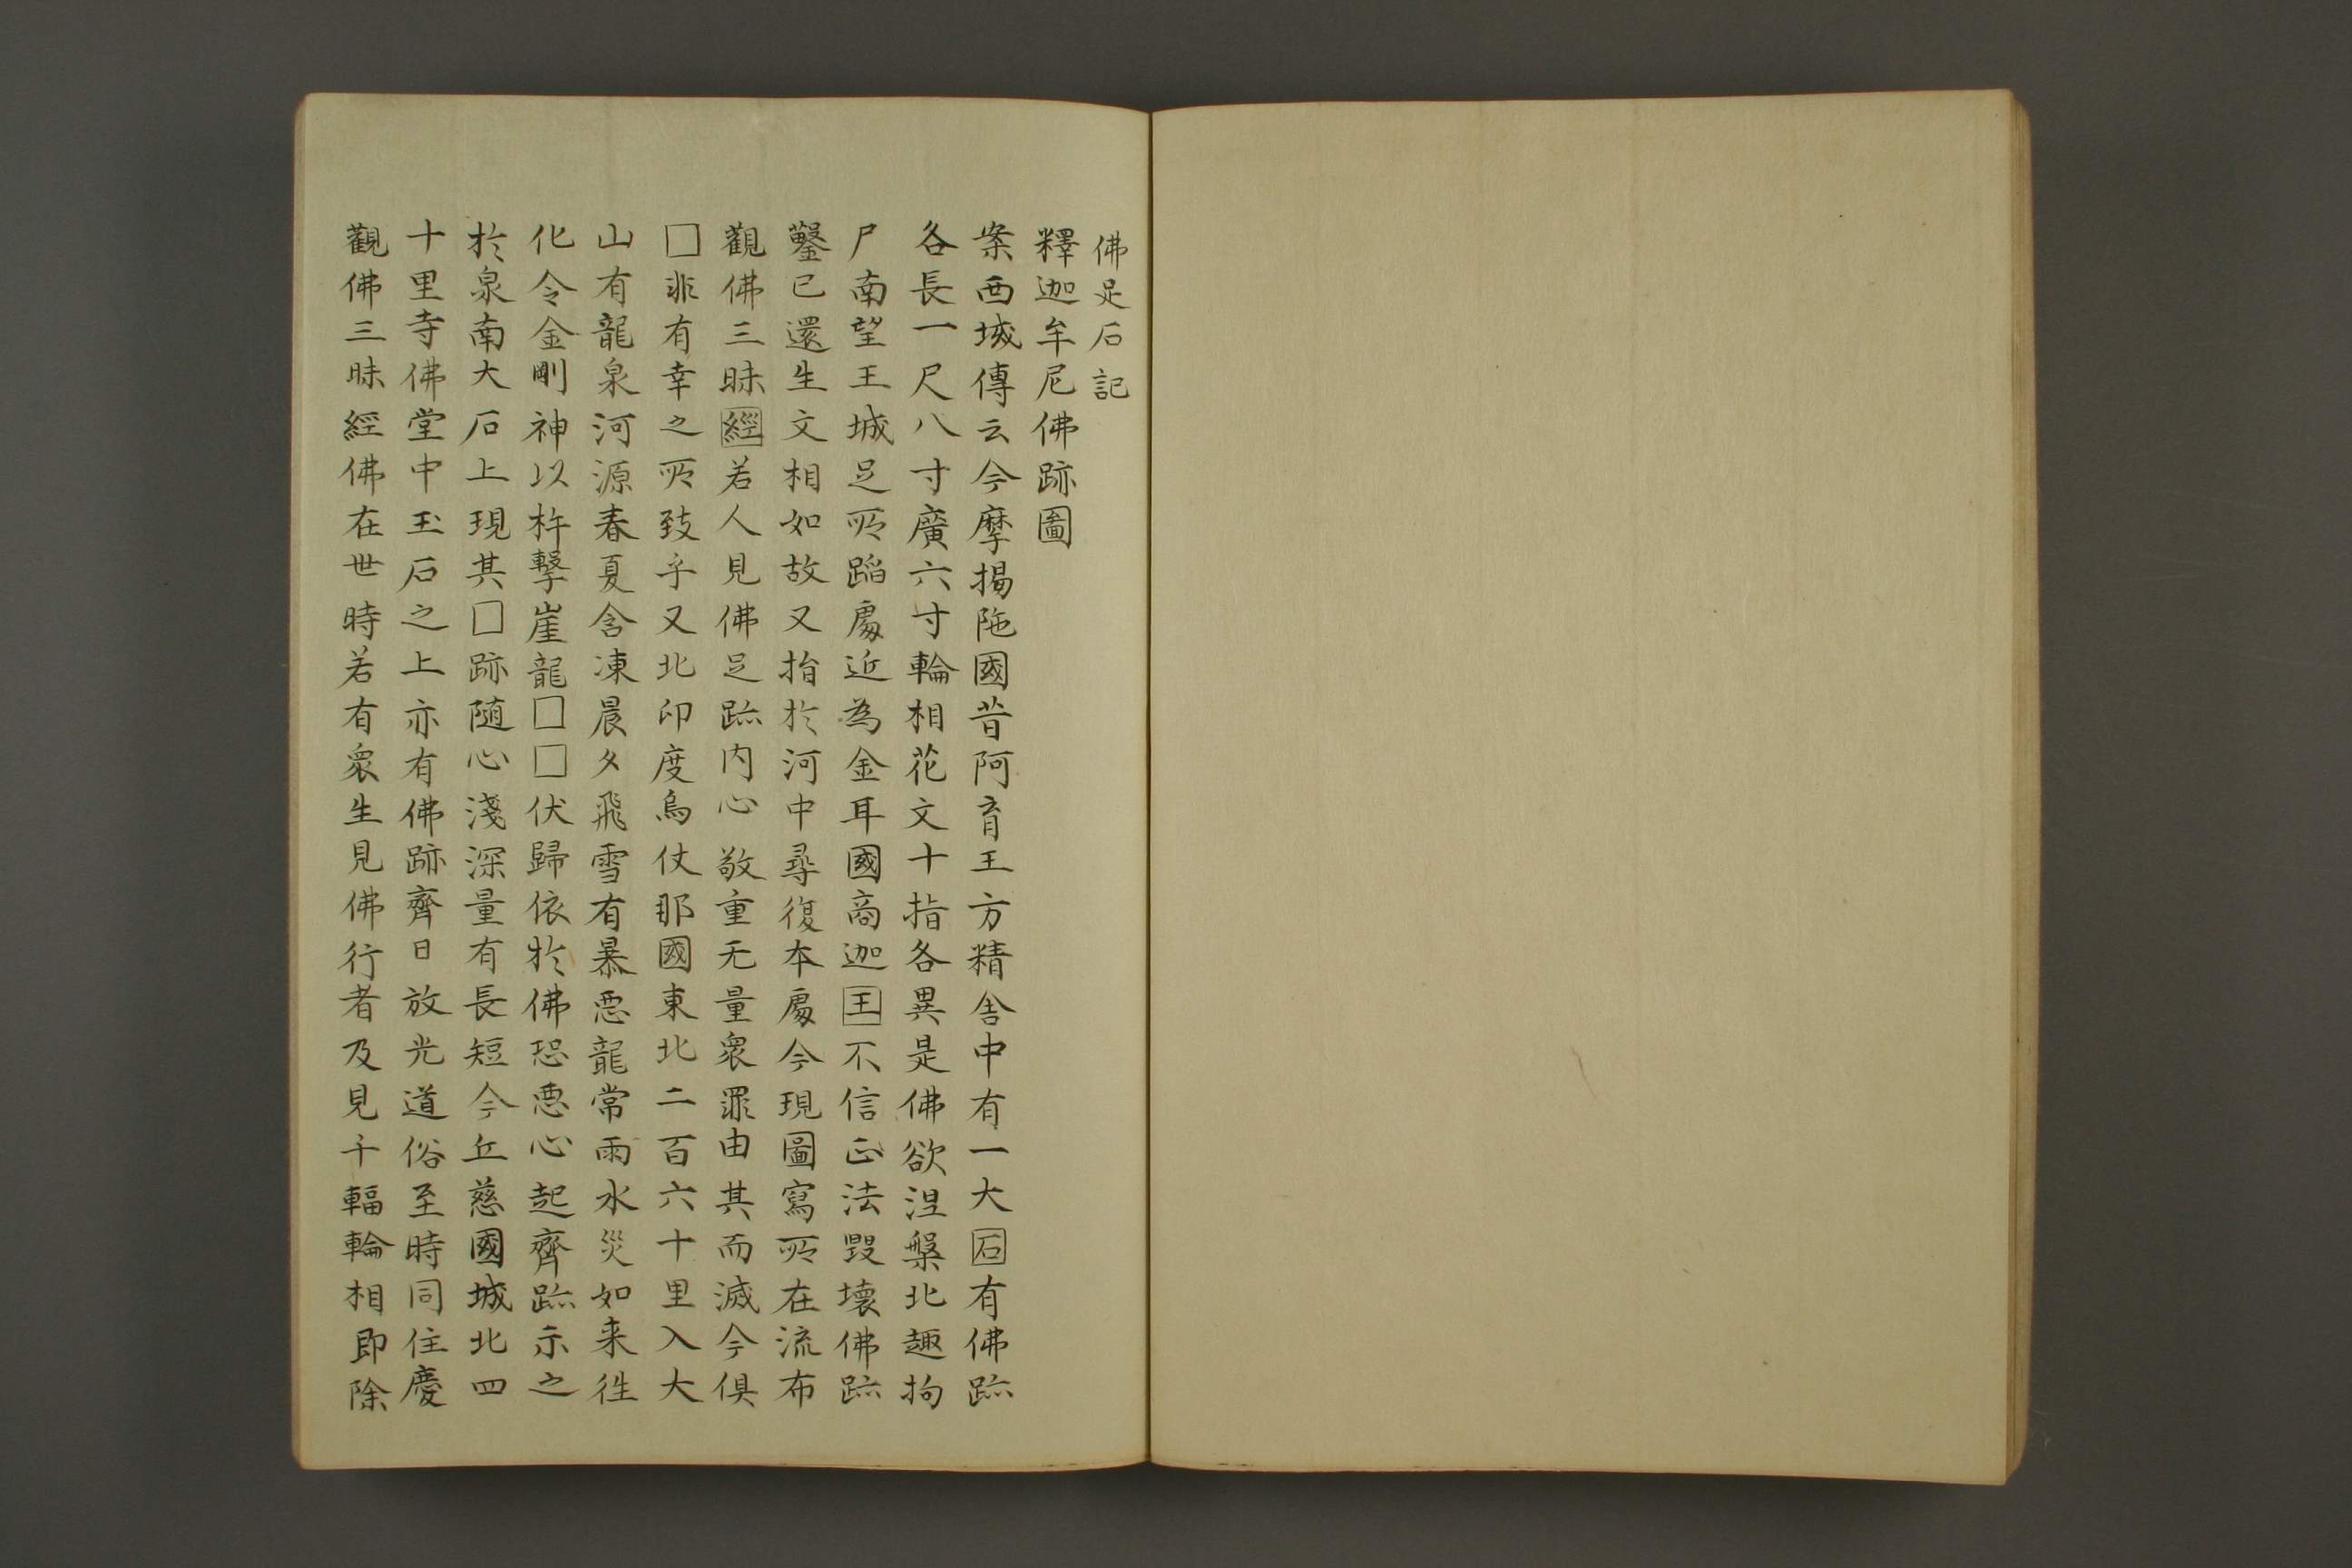 佛足石記
釋迦牟尼佛跡圖
案西域傳云今摩揭陁國昔阿育王方精舎中有一大石有佛跡
各長一尺八寸廣六寸輪相花文十指各異是佛欲涅槃北趣拘
尸南望王城足所蹈處近為金耳國商迦王不信正法毀壊佛跡
鑿已還生文相如故又捨於河中尋復本處今現圖寫所在流布
觀佛三昧經若人見佛足跡内心敬重无量衆罪由其而滅今俱
□非有幸之所致乎又北印度烏仗那國東北二百六十里入大
山有龍泉河源春夏含凍晨夕飛雪有暴悪龍常雨水災如来往
化令金剛神以杵擊崖龍□□伏歸依於佛恐悪心起齊跡示之
於泉南大石上現其□跡随心淺深量有長短今丘慈國城北四
十里寺佛堂中玉石之上亦有佛跡齊日放光道俗至時同住慶
觀佛三昧經佛在世時若有衆生見佛行者及見千輻輪相即除